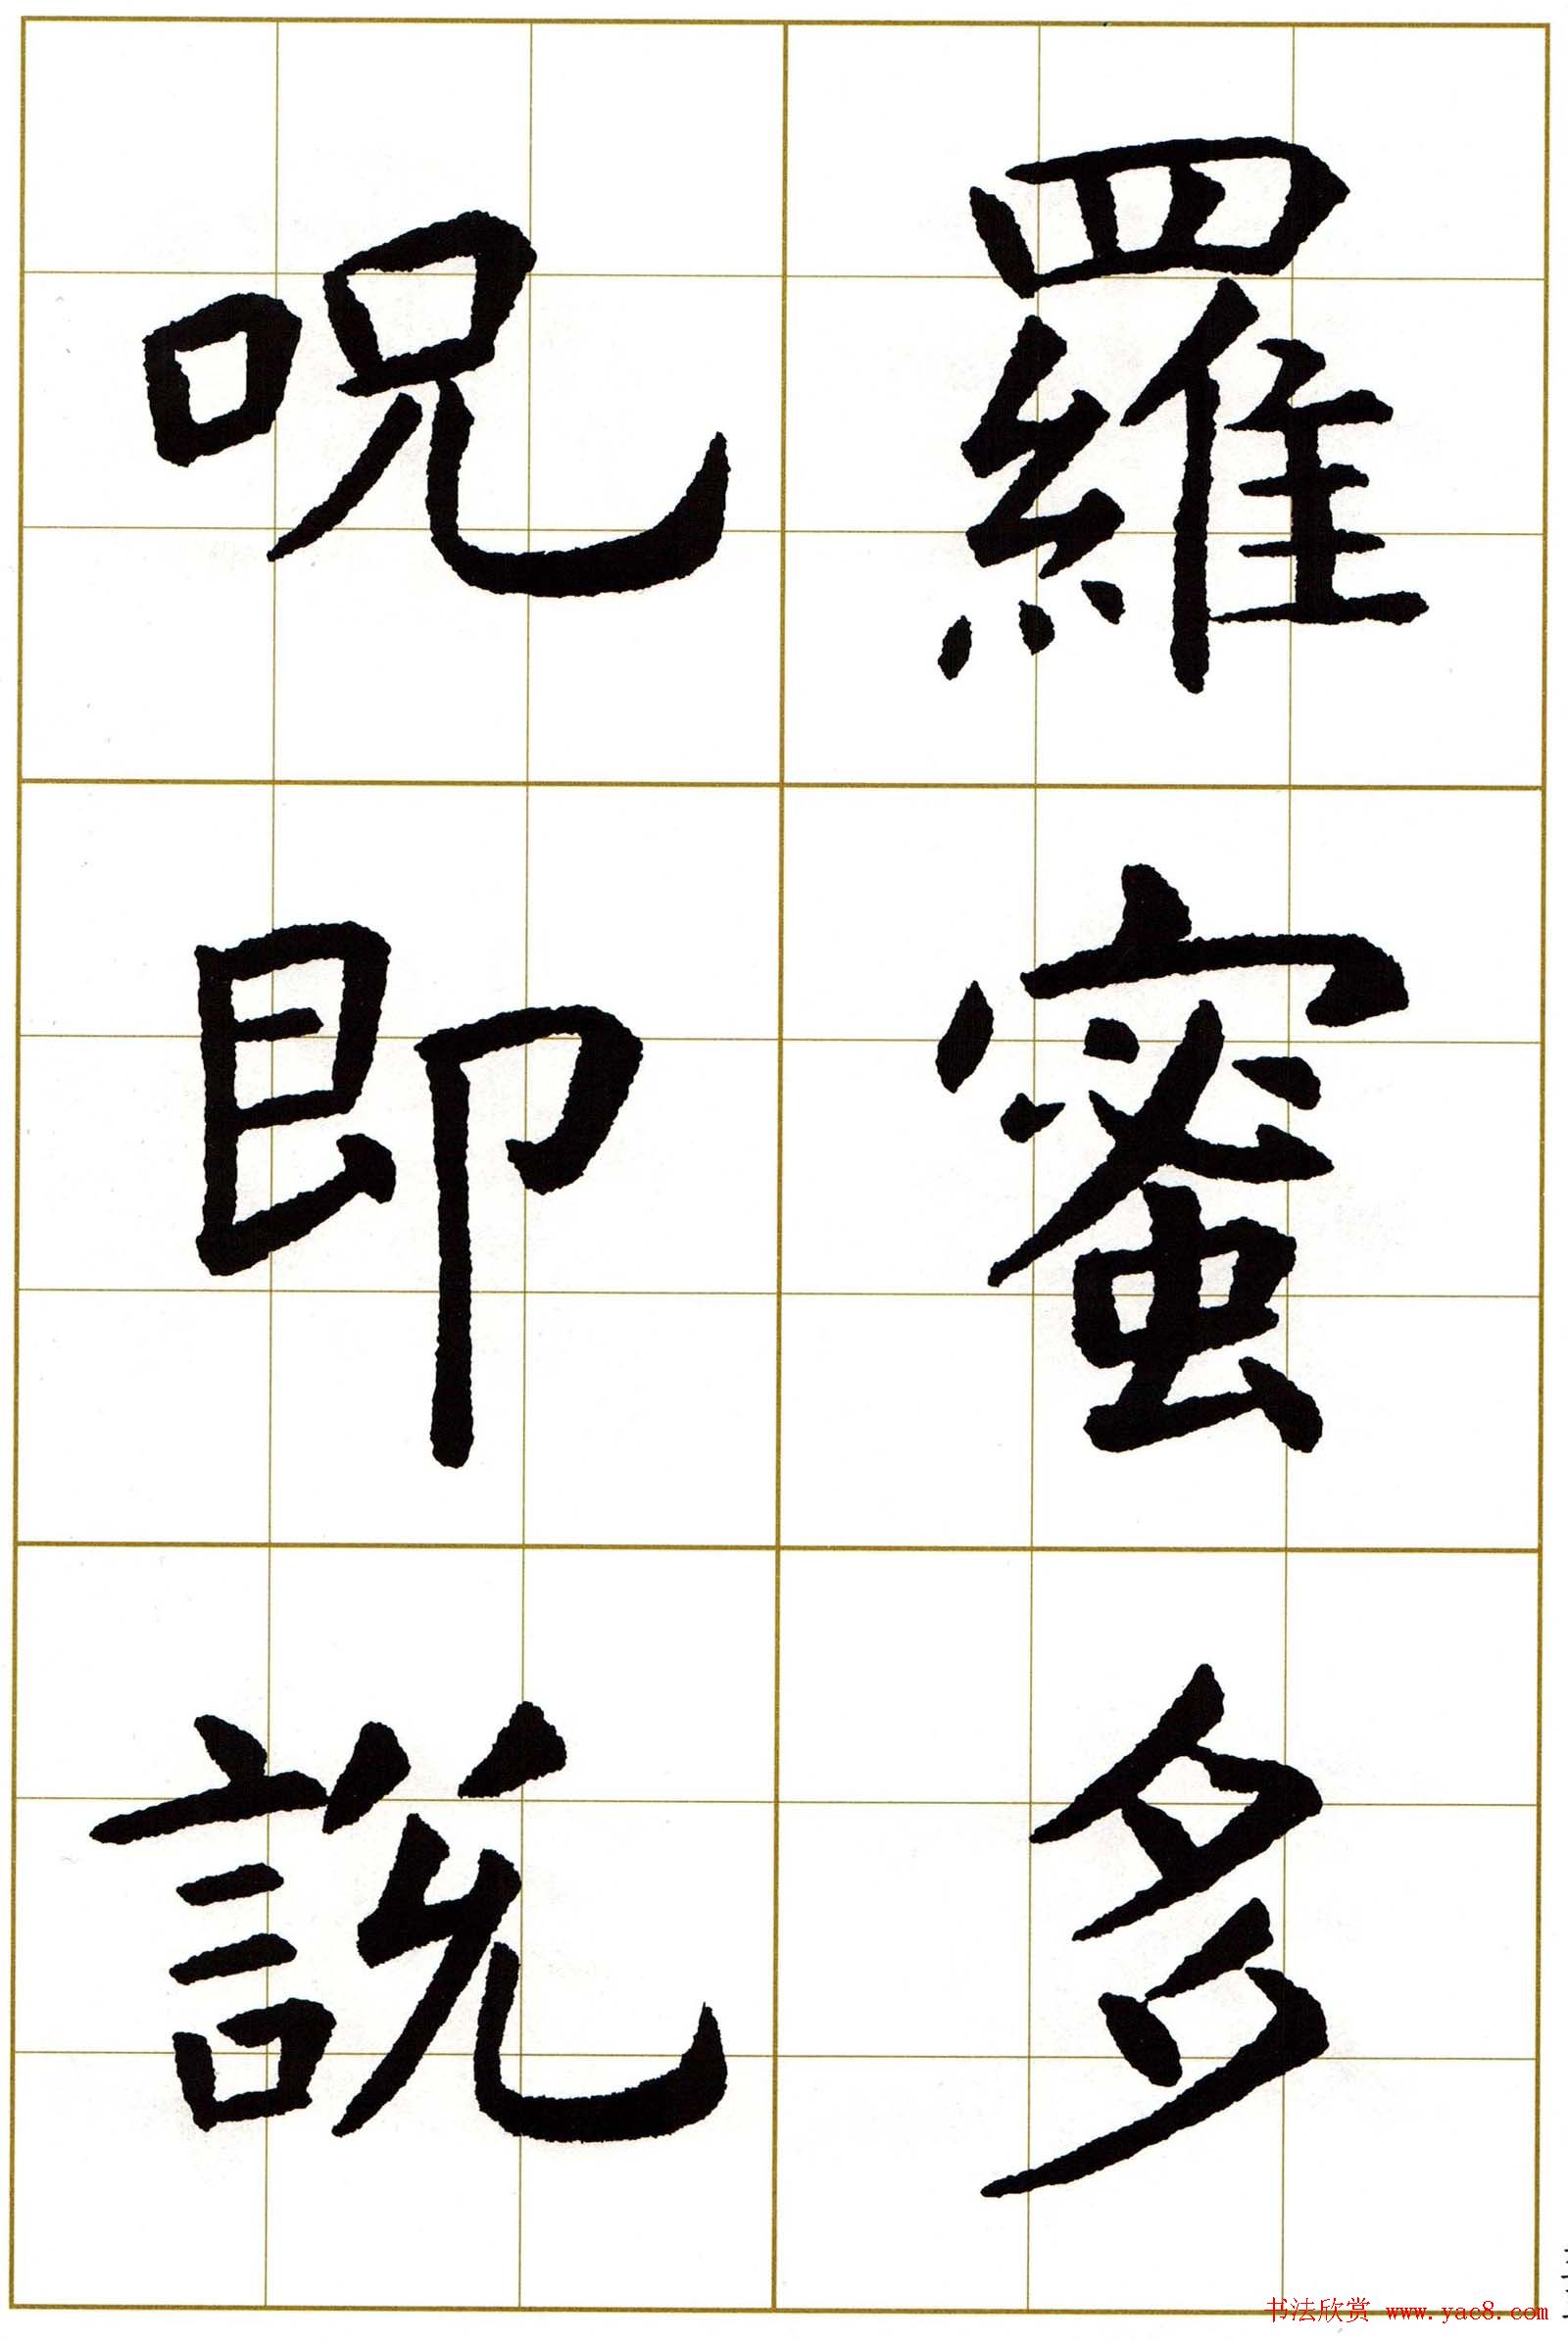 羅蜜多
呪即說
书法欣赏 www.yac8.com